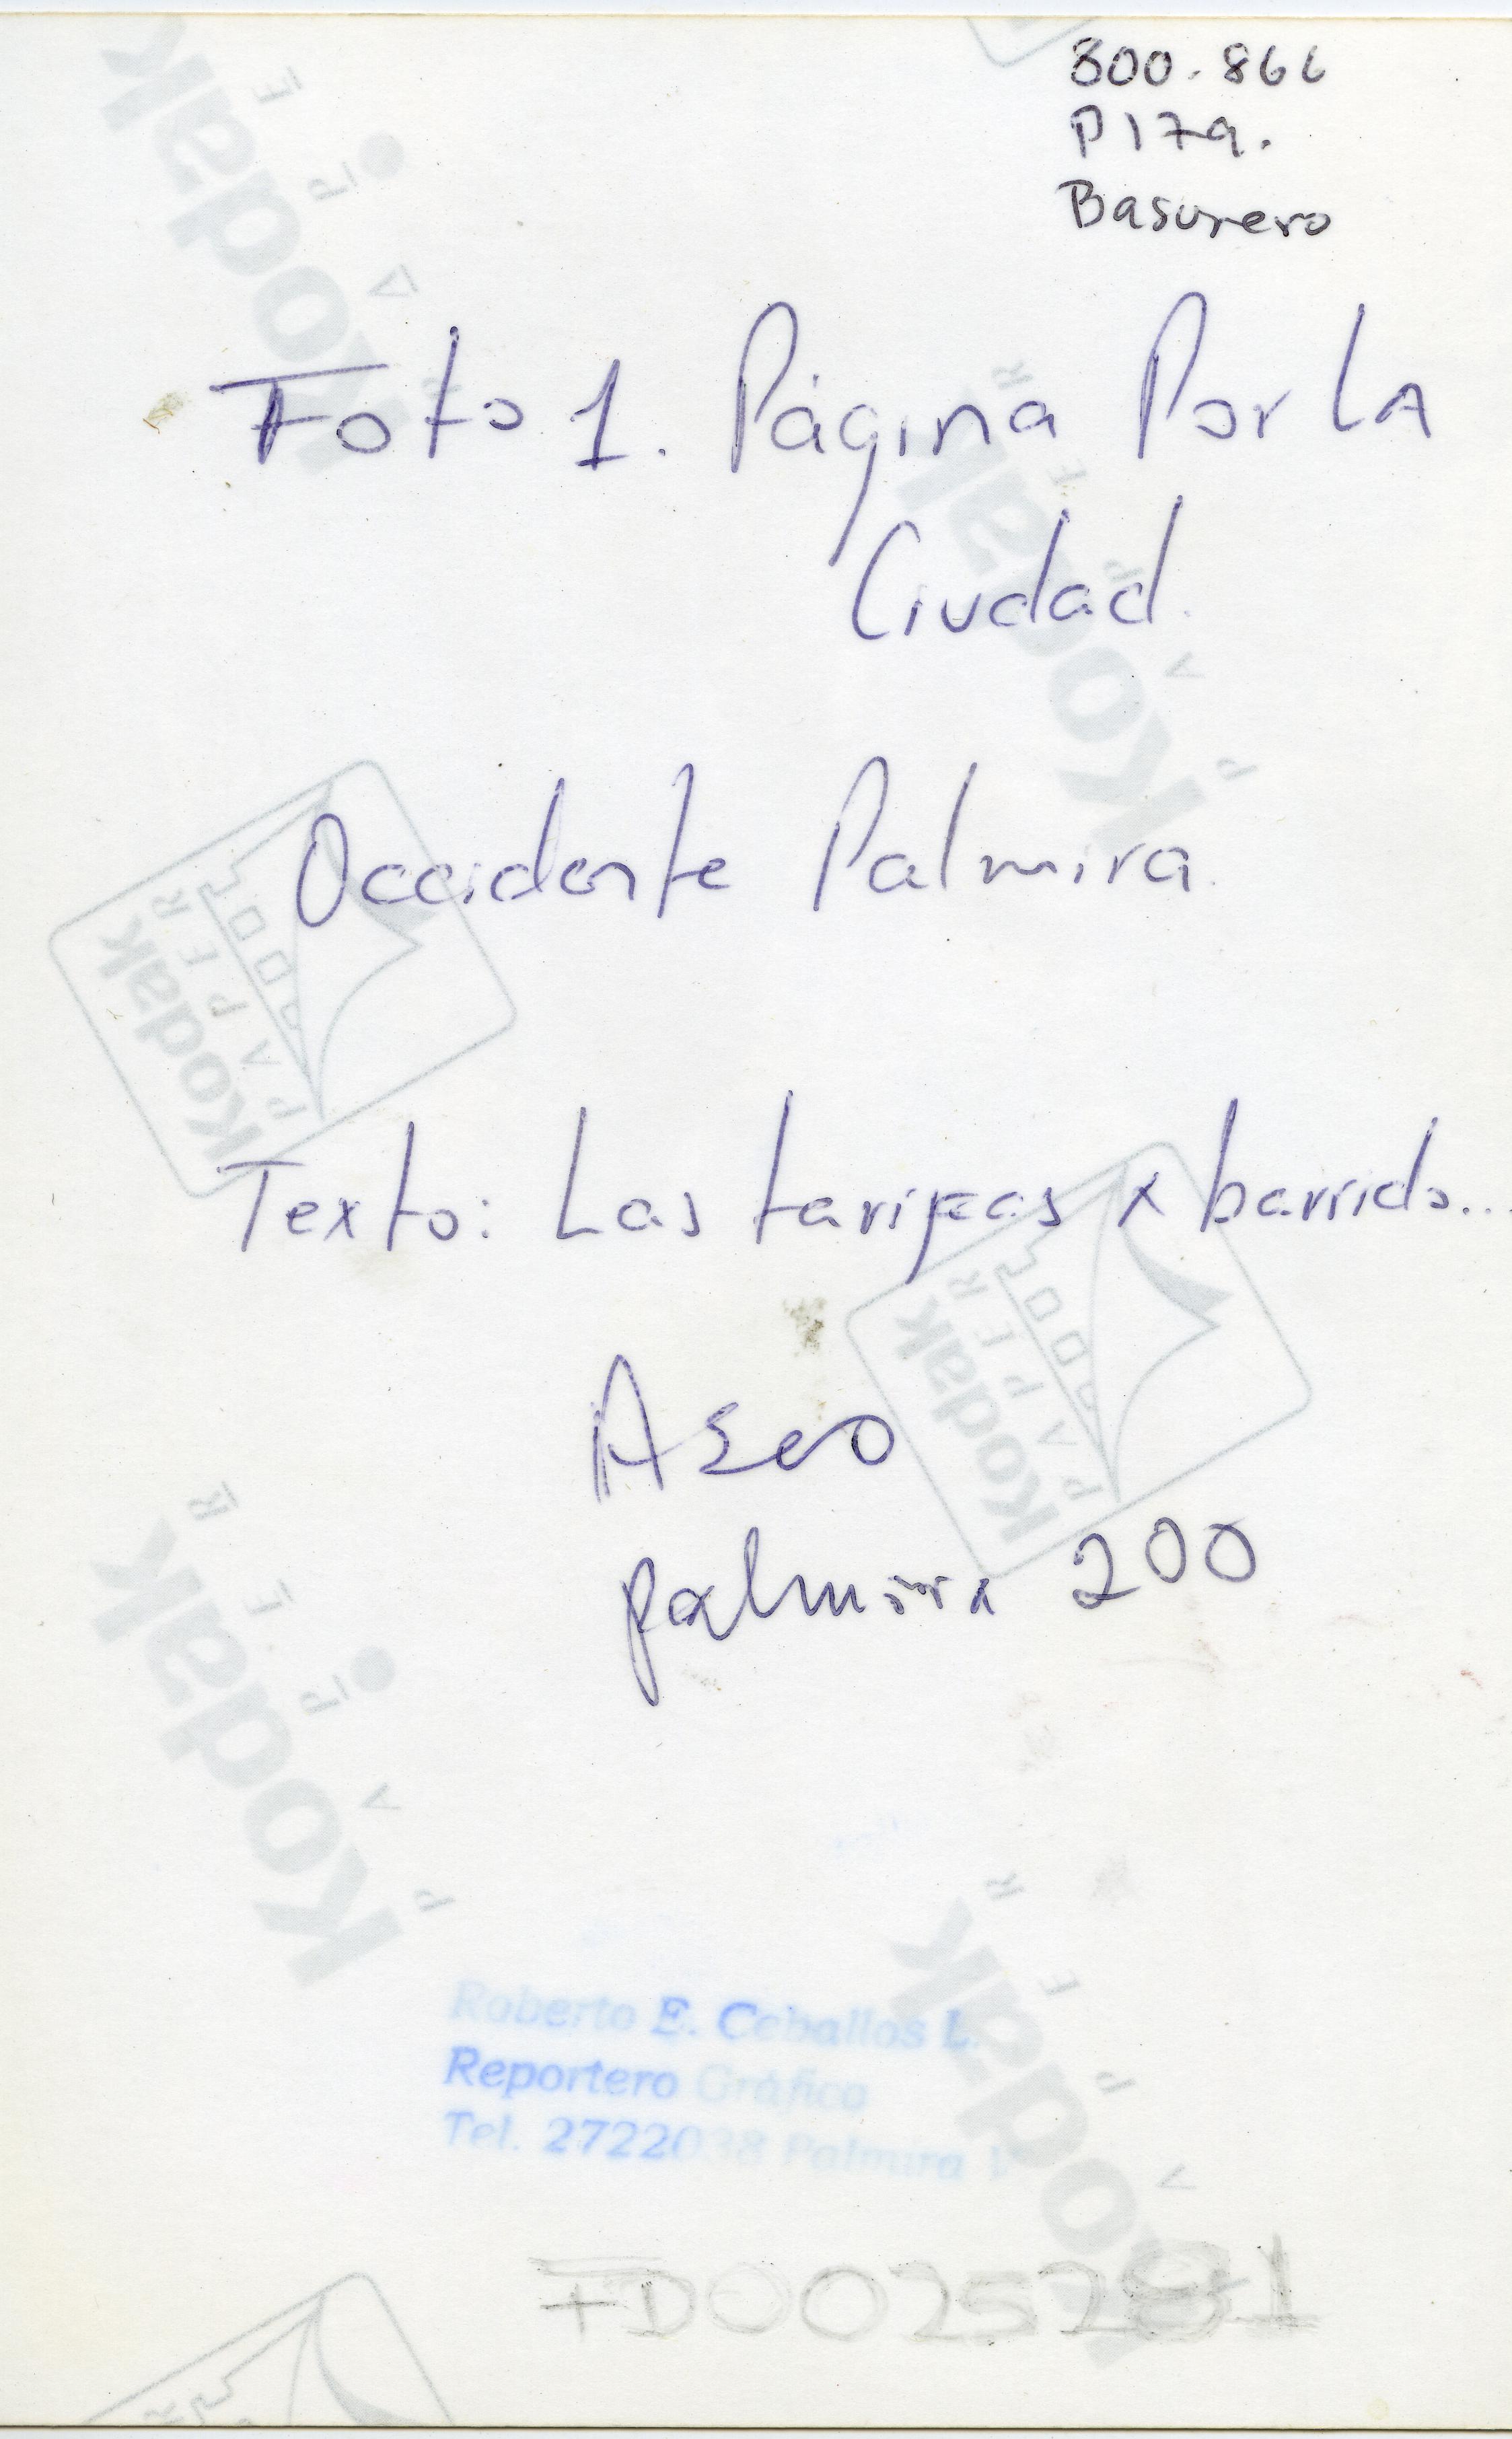 800.866
P179.
Basurero
Foto 1. Página Por LA
Ciudad.
Occidente Palmira.
Texto: Las tarifas x barrido...
Aseo
palmira 200
Roberto E. Ceballos L.
Reportero Gráfico
Tel. 2722038 Palmira V
FD0025281
Kodak
PAPER
Kodak
PAPER
Kodak
PAPER
Kodak
PAPER
Kodak
PAPER
Kodak
PAPER